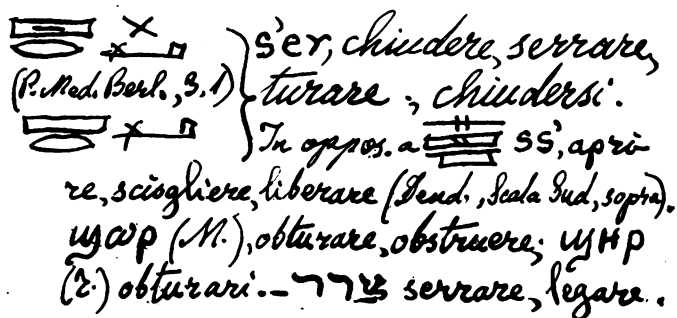 s'er, chiudere, serrare,
(P. Med. Berl., 3. 1) turare ; chiudersi.
In oppos. a ss', apri-
re, sciogliere, liberare (Dend., Scala Sud, sopra).
ϣωρ (M.), obturare, obstruere; ϣηρ
(τ.) obturari. — צרר serrare, legare.